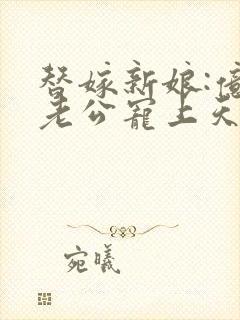 替嫁新娘:億
老公寵上天
宛曦